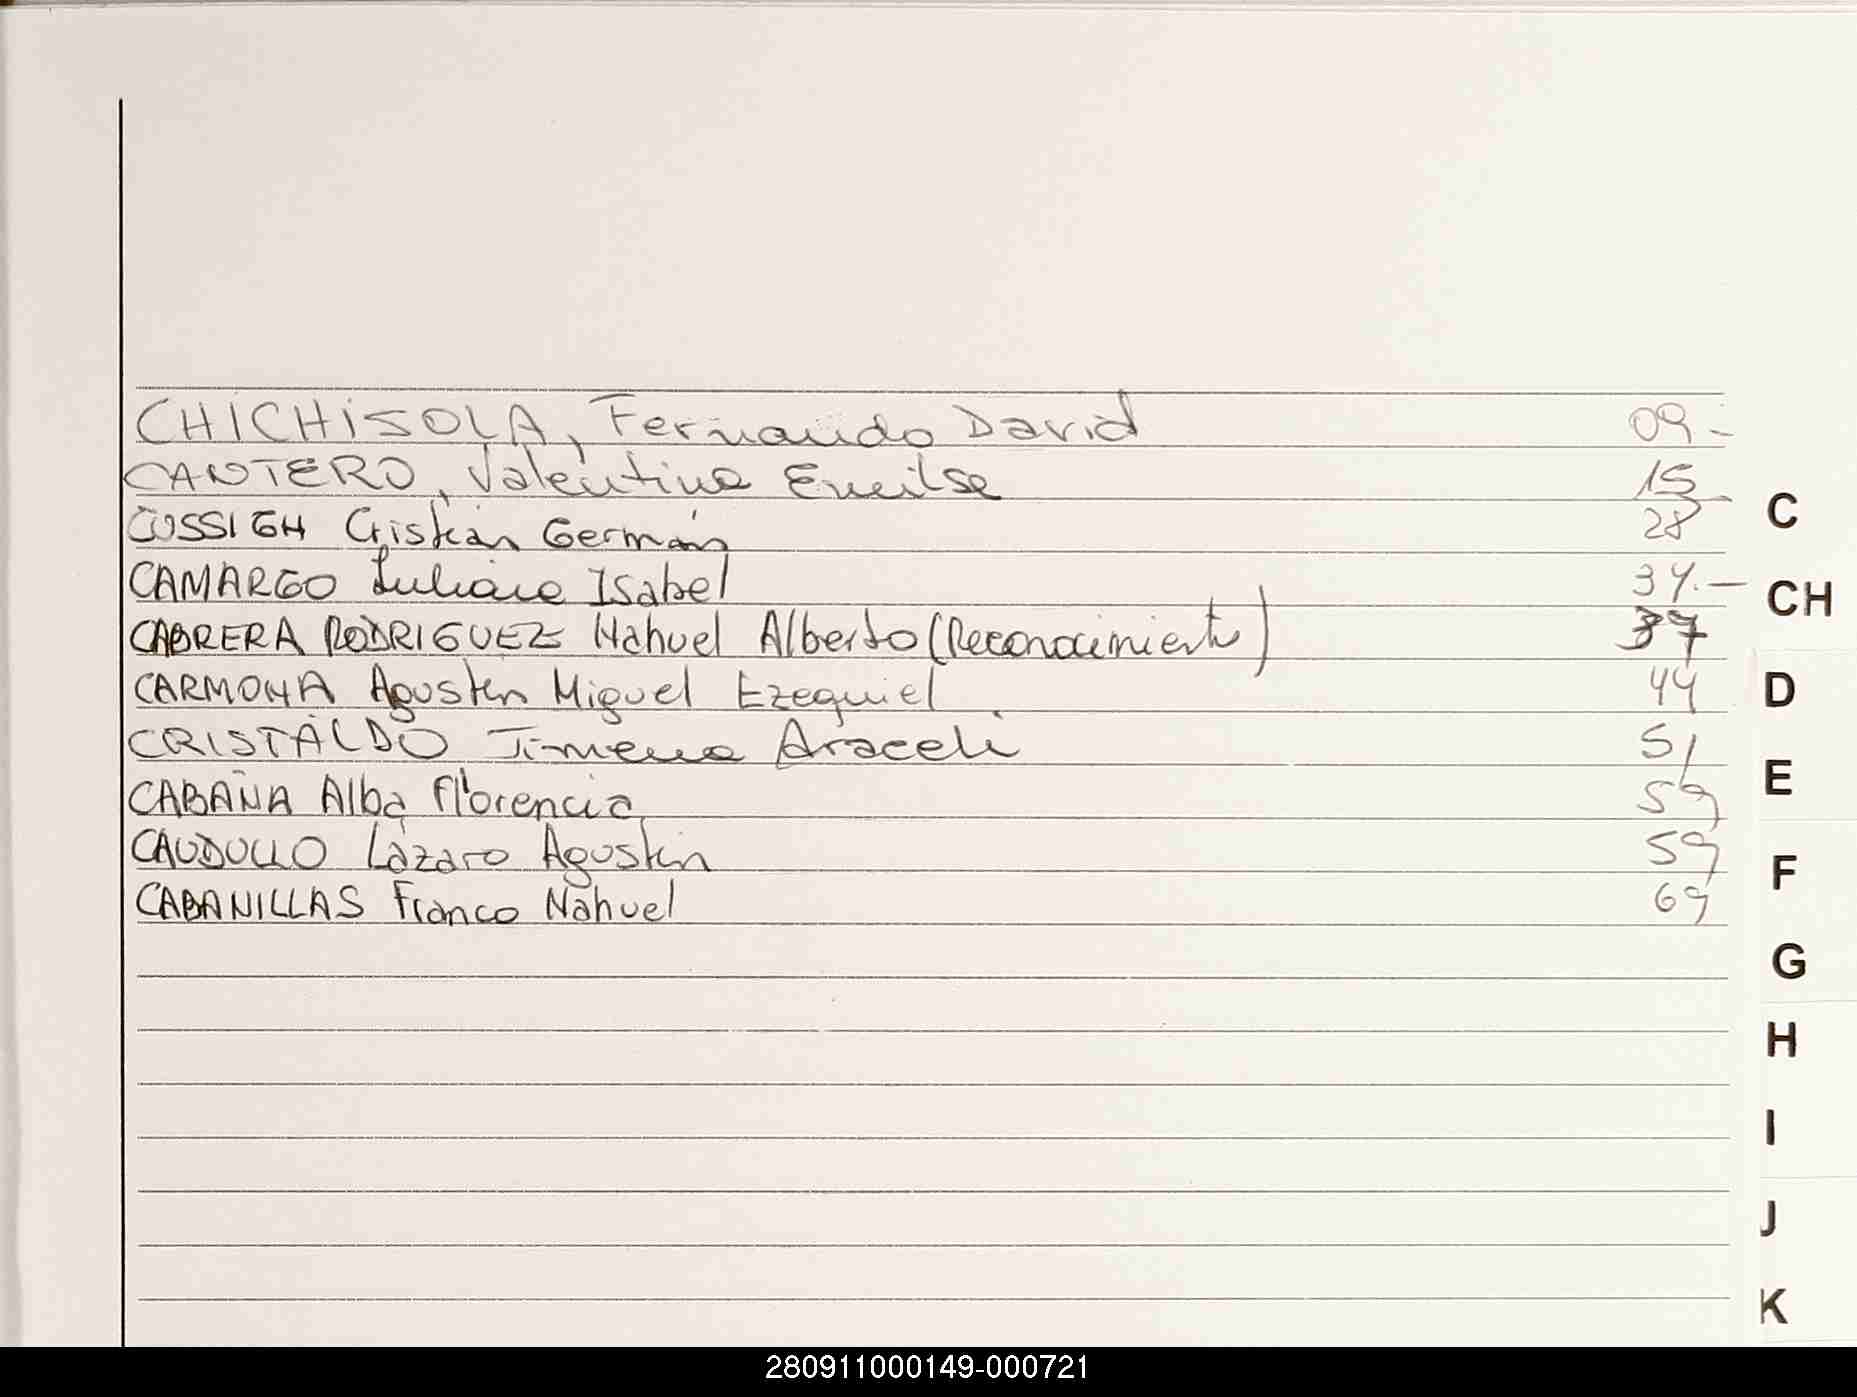 CHICHISOLA, Fernando David 09.-
CANTERO, Valentina Emilse 15
COSSIGH Cristián Germán 28
CAMARGO Juliana Isabel 34.-
CABRERA RODRIGUEZ Nahuel Alberto (Reconocimiento) 37
CARMONA Agustín Miguel Ezequiel 44
CRISTALDO Jimena Araceli 51
CABAÑA Alba Florencia 59
CAUDULLO Lázaro Agustín 59
CABANILLAS Franco Nahuel 69
C
CH
D
E
F
G
H
I
J
K
280911000149-000721